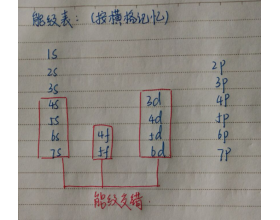 能级表：（按横格记忆）
1s
2s 2p
3s 3p
4s 3d 4p
5s 4d 5p
6s 4f 5d 6p
7s 5f 6d 7p
能级交错